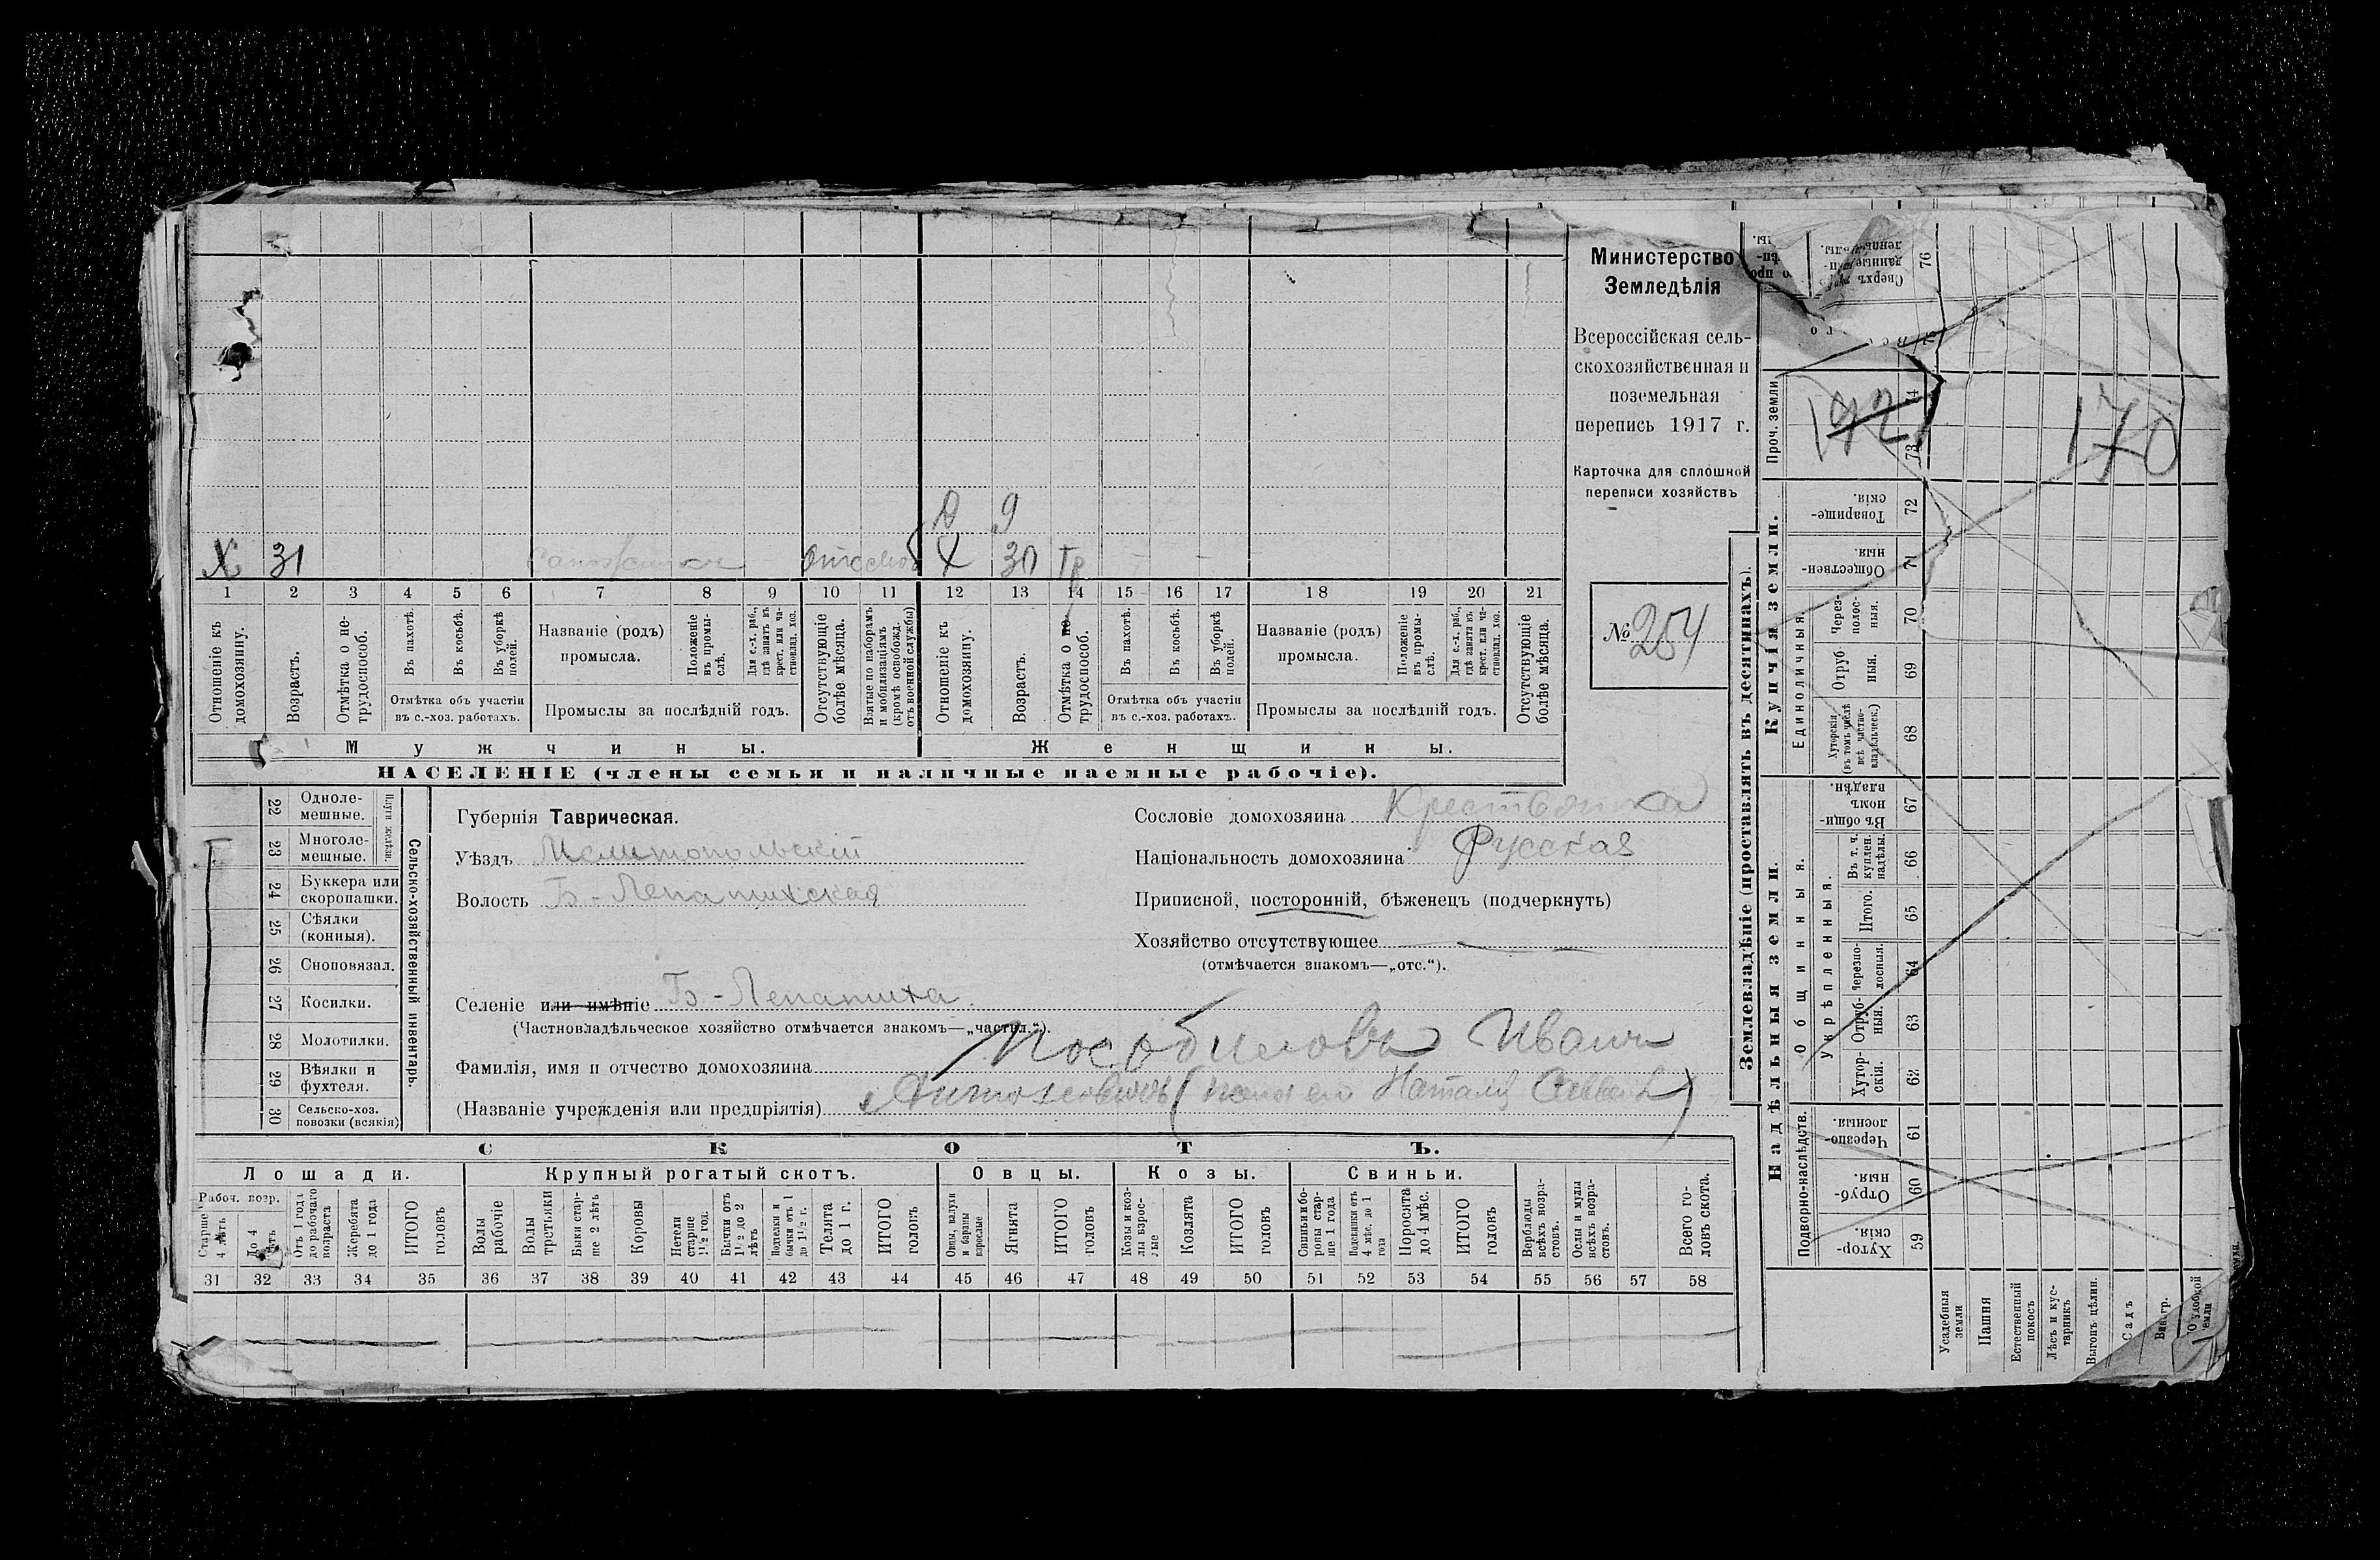 Министерство
Земледѣлія
Всероссійская сель-
скохозяйственная и
поземельная
перепись 1917 г.
Карточка для сплошной
переписи хозяйствъ
№ 204
Д 9
Х 31 Х 30 Гр
1 2 3 4 5 6 7 8 9 10 11 12 13 14 15 16 17 18 19 20 21
Отношеніе къ домохозяину.
Возрастъ.
Отмѣтка о не-трудоспособ.
Въ пахотѣ.
Въ косьбѣ.
Въ уборкѣ полей.
Отмѣтка объ участіи
въ с.-хоз. работахъ.
Названіе (родъ)
промысла.
Положеніе въ промы-слѣ.
Для с.-х. раб., гдѣ занятъ въ крест. или ча-стновл. хоз.
Промыслы за послѣдній годъ.
Отсутствующіе болѣе мѣсяца.
Взятые по наборамъ и мобилизаціямъ (кромѣ освобожд. отъ военной службы)
Отношеніе къ домохозяину.
Возрастъ.
Отмѣтка о не-трудоспособ.
Въ пахотѣ.
Въ косьбѣ.
Въ уборкѣ полей.
Отмѣтка объ участіи
въ с.-хоз. работахъ.
Названіе (родъ)
промысла.
Положеніе въ промы-слѣ.
Для с.-х. раб., гдѣ занята въ крест. или ча-стновл. хоз.
Промыслы за послѣдній годъ.
Отсутствующіе болѣе мѣсяца.
Мужчины. Женщины.
НАСЕЛЕНІЕ (члены семьи и наличные наемные рабочіе).
Сельско-хозяйственный инвентарь.
Плуги желѣзн.
22 Одноле-мешные.
23 Многоле-мешные.
24 Буккера или скоропашки.
25 Сѣялки (конныя).
26 Сноповязал.
27 Косилки.
28 Молотилки.
29 Вѣялки и фухтеля.
30 Сельско-хоз. повозки (всякія)
Губернія Таврическая.
Уѣздъ Мелитопольскій
Волость Б.-Лепатихская
Селеніе или имѣніе Б.-Лепатиха.
(Частновладѣльческое хозяйство отмѣчается знакомъ—„частвл.“).
Фамилія, имя и отчество домохозяина Иванъ
(Названіе учрежденія или предпріятія)
Сословіе домохозяина Крестьянка
Національность домохозяина Русская
Приписной, посторонній, бѣженецъ (подчеркнуть)
Хозяйство отсутствующее
(отмѣчается знакомъ—„отс.“).
СКОТЪ.
Лошади. Крупный рогатый скотъ. Овцы. Козы. Свиньи.
Рабоч. возр.
Старше 4 лѣтъ
До 4 лѣтъ
Отъ 1 года до рабочаго возраста
Жеребята до 1 года
ИТОГО головъ
Волы рабочіе
Волы третьяки
Быки стар-ше 2 лѣтъ
Коровы
Нетели старше 1½ год.
Бычки отъ 1½ до 2 лѣтъ
Подтелки и бычки отъ 1 до 1½ г.
Телята до 1 г.
ИТОГО головъ
Овцы, валухи и бараны взрослые
Ягнята
ИТОГО головъ
Козы и коз-лы взрос-лые
Козлята
ИТОГО головъ
Свиньи и бо-ровы стар-ше 1 года
Подсвинки отъ 4 мѣс. до 1 года
Поросята до 4 мѣс.
ИТОГО головъ
Верблюды всѣхъ возра-стовъ.
Ослы и мулы всѣхъ возра-стовъ.
Всего го-ловъ скота.
31 32 33 34 35 36 37 38 39 40 41 42 43 44 45 46 47 48 49 50 51 52 53 54 55 56 57 58
Землевладѣніе (проставлять въ десятинахъ).
Надѣльныя земли. Купчія земли.
Проч. земли
192 170
Подворно-наслѣдств.
Общинныя.
Укрѣпленныя.
Единоличныя.
Хутор-скія. 59
Отруб-ныя. 60
Черезпо-лосныя. 61
Хутор-скія. 62
Отруб-ныя. 63
Черезпо-лосныя. 64
Итого. 65
Въ т. ч. куплен. надѣлы. 66
Въ общи-номъ владѣн. 67
Хуторскія (въ томъ числѣ всѣ частно-владѣльческ.) 68
Отруб ныя. 69
Через-полос-ныя. 70
Обществен-ныя. 71
Товарище-скія. 72
73
74
76
Усадебныя земли
Пашня
Естественный покосъ
Лѣсъ и кус-тарникъ
Выгонъ цѣлин.
Садъ